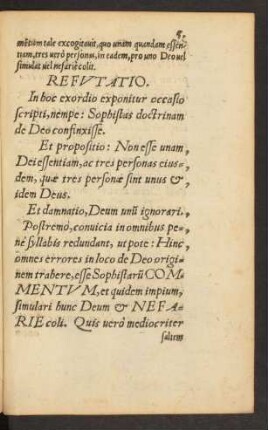 8.
mētum tale excogitauit, quo unam quandam essen
tiam, tres verò personas, in eadem, pro uno Deo uel
simulat uel nefariè colit.
REFVTATIO.
In hoc exordio exponitur occasio
scripti, nempe: Sophistas doctrinam
de Deo confinxisse.
Et propositio: Non esse unam
Dei essentiam, ac tres personas eius-
dem, quæ tres personæ sint unus &
idem Deus.
Et damnatio, Deum unū ignorari.
Postremò, conuicia in omnibus pe-
nè syllabis redundant, ut pote: Hinc
omnes errores in loco de Deo origi-
nem trahere, esse Sophistarū COM-
MENTVM, et quidem impium,
simulari hunc Deum & NEFA-
RIE coli. Quis verò mediocriter
saltem